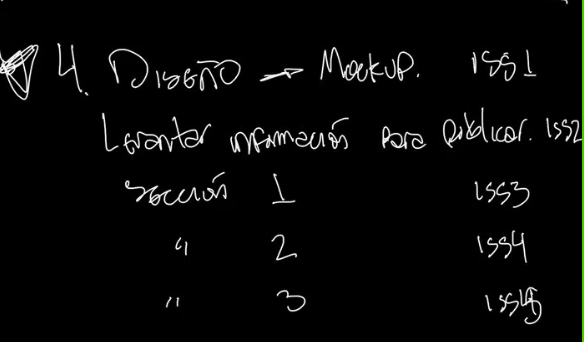 4. DISEÑO → Mockup. ISS1
Levantar información para públicar. ISS2
sección 1 ISS3
" 2 ISS4
" 3 ISS5